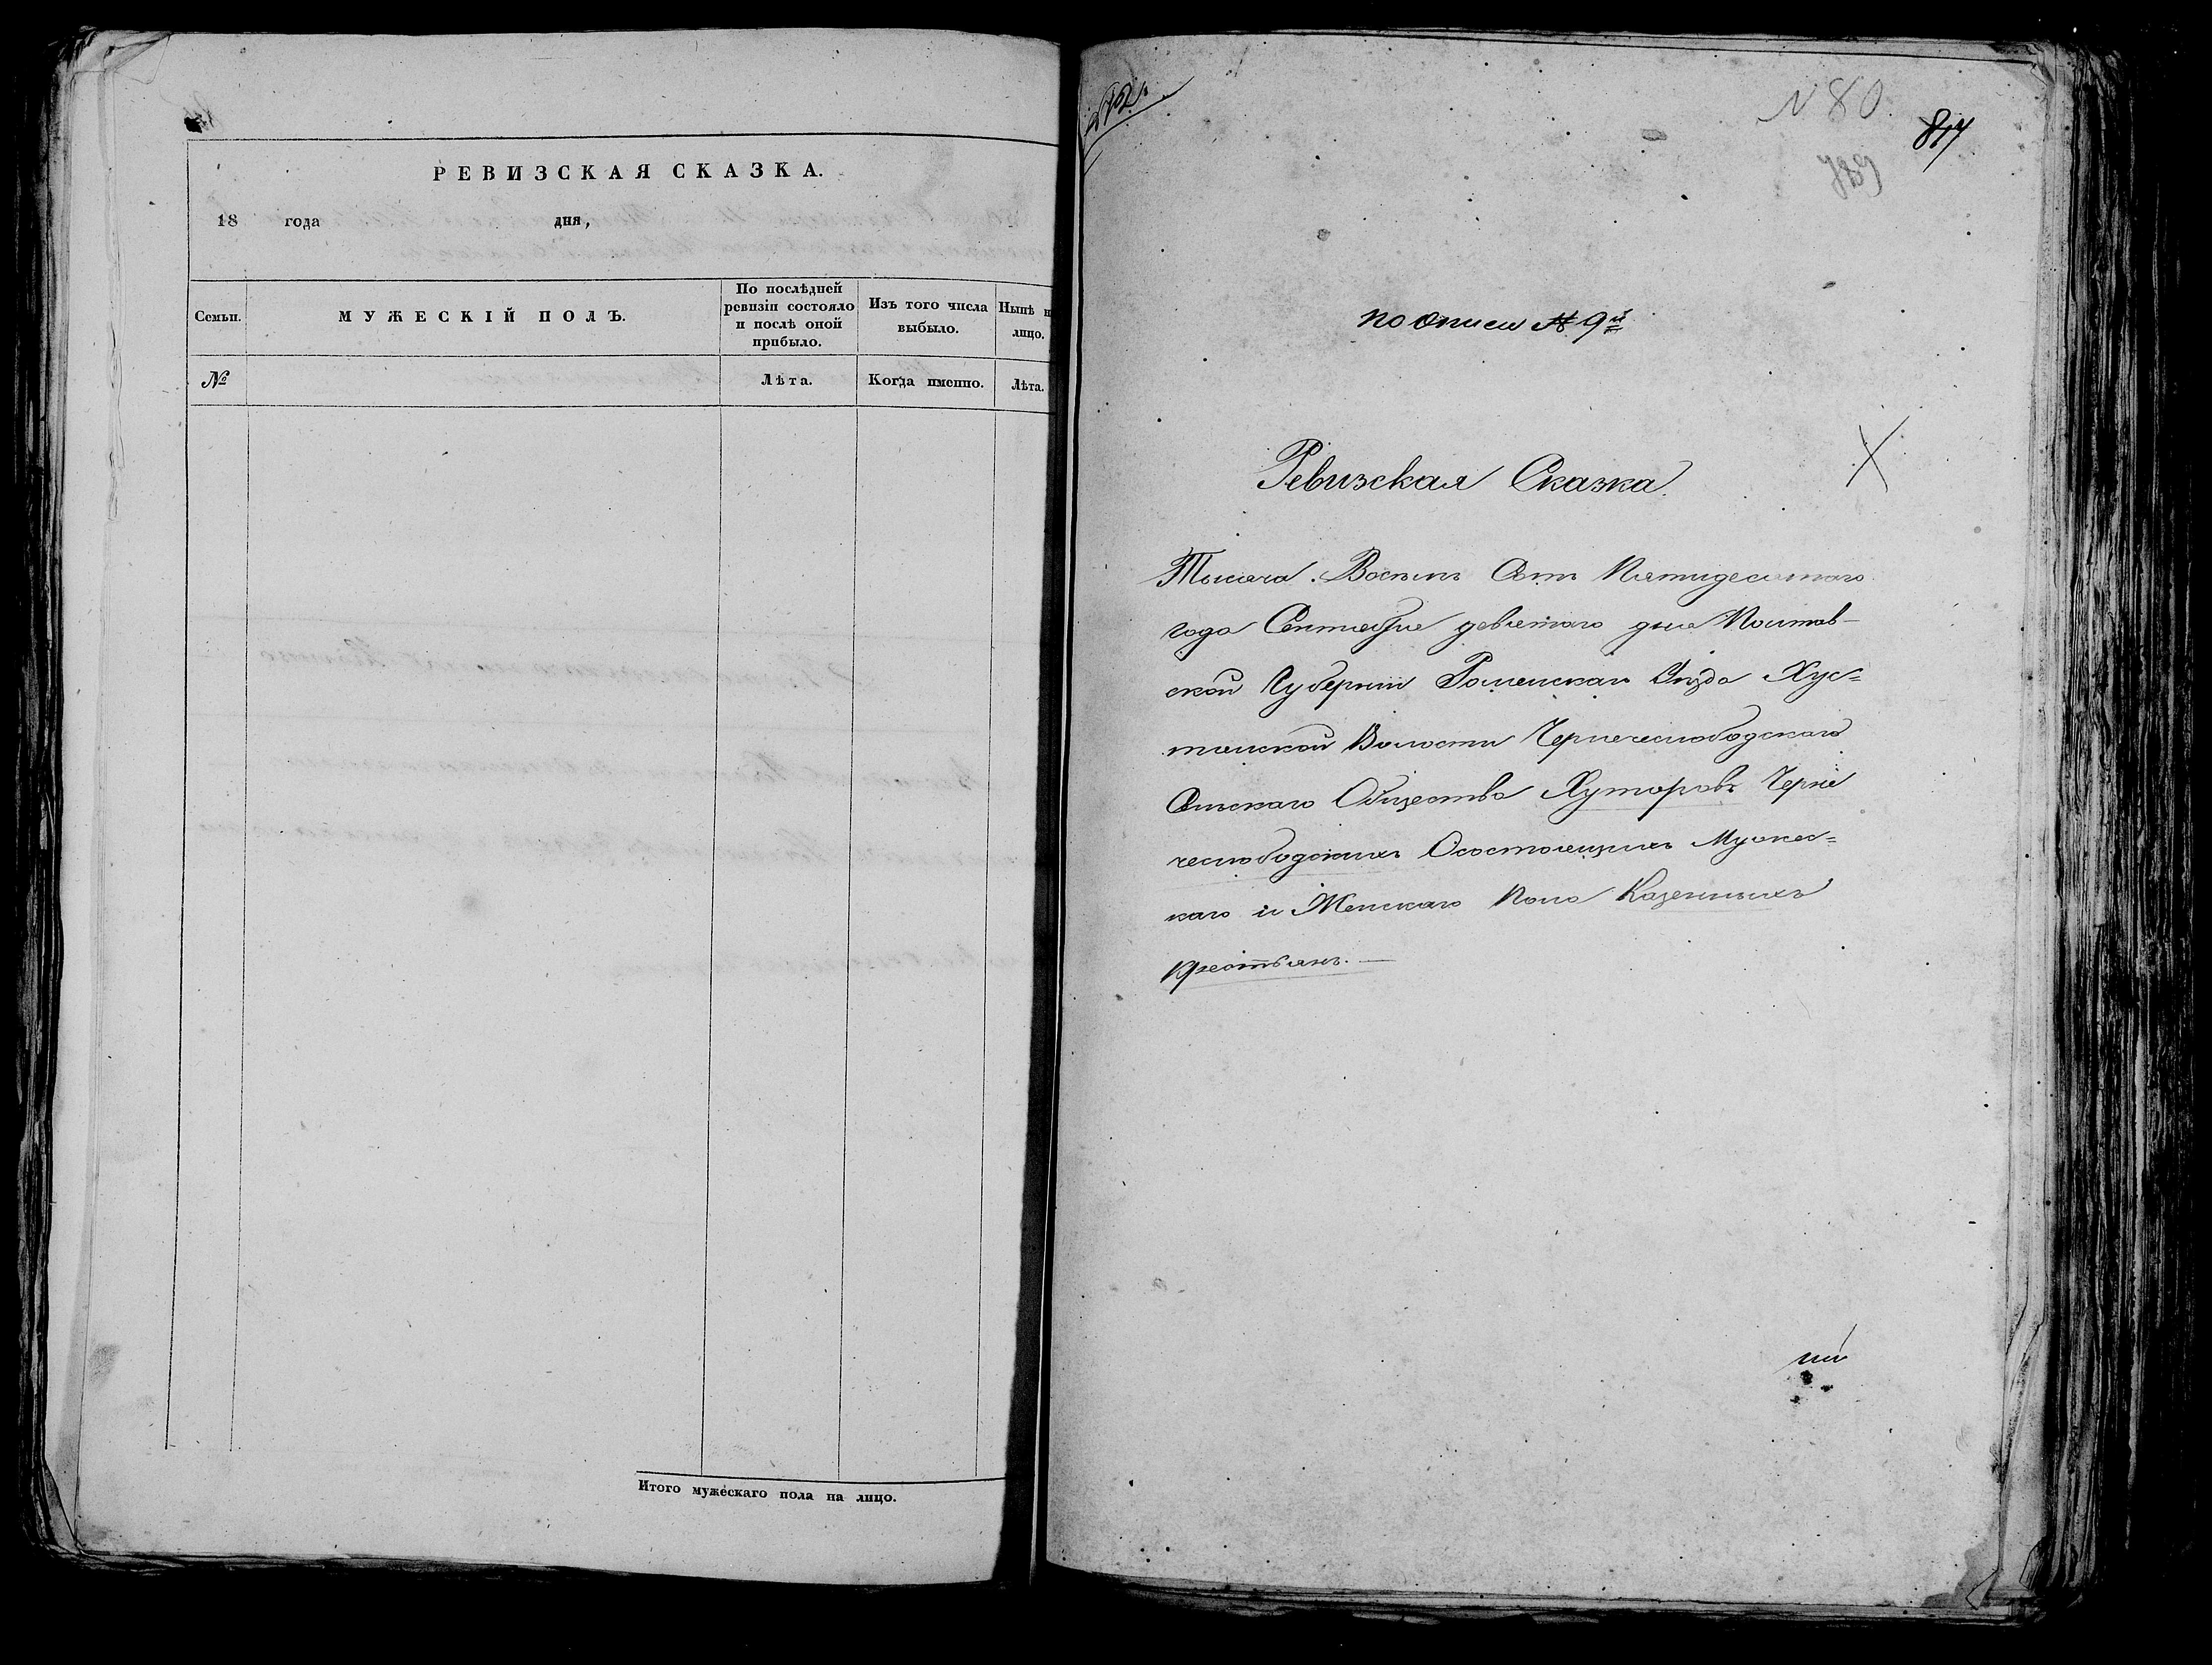 РЕВИЗСКАЯ СКАЗКА.
18 года дня,
Семьи.
МУЖЕСКІЙ ПОЛЪ.
По послѣдней
ревизіи состояло
и послѣ оной
прибыло.
Изъ того числа
выбыло.
Нынѣ н
лицо.
№
Лѣта.
Когда именно.
Лѣта.
Итого мужескаго пола на лицо.
N 80
817
по описи № 9й
Ревизская Сказка.
Тысяча Восемъ Сотъ Пятидесятаго
года Сентября девятаго дня Полтав-
ской Губерніи Роменскаго Уѣзда Хус=
тянской Волости Чернечеслободскаго
Сельскаго Общества Хуторовъ Черне
чеслободскихъ О состоящихъ Мужес=
каго и Женскаго пола Казенныхъ
крестьянъ. —